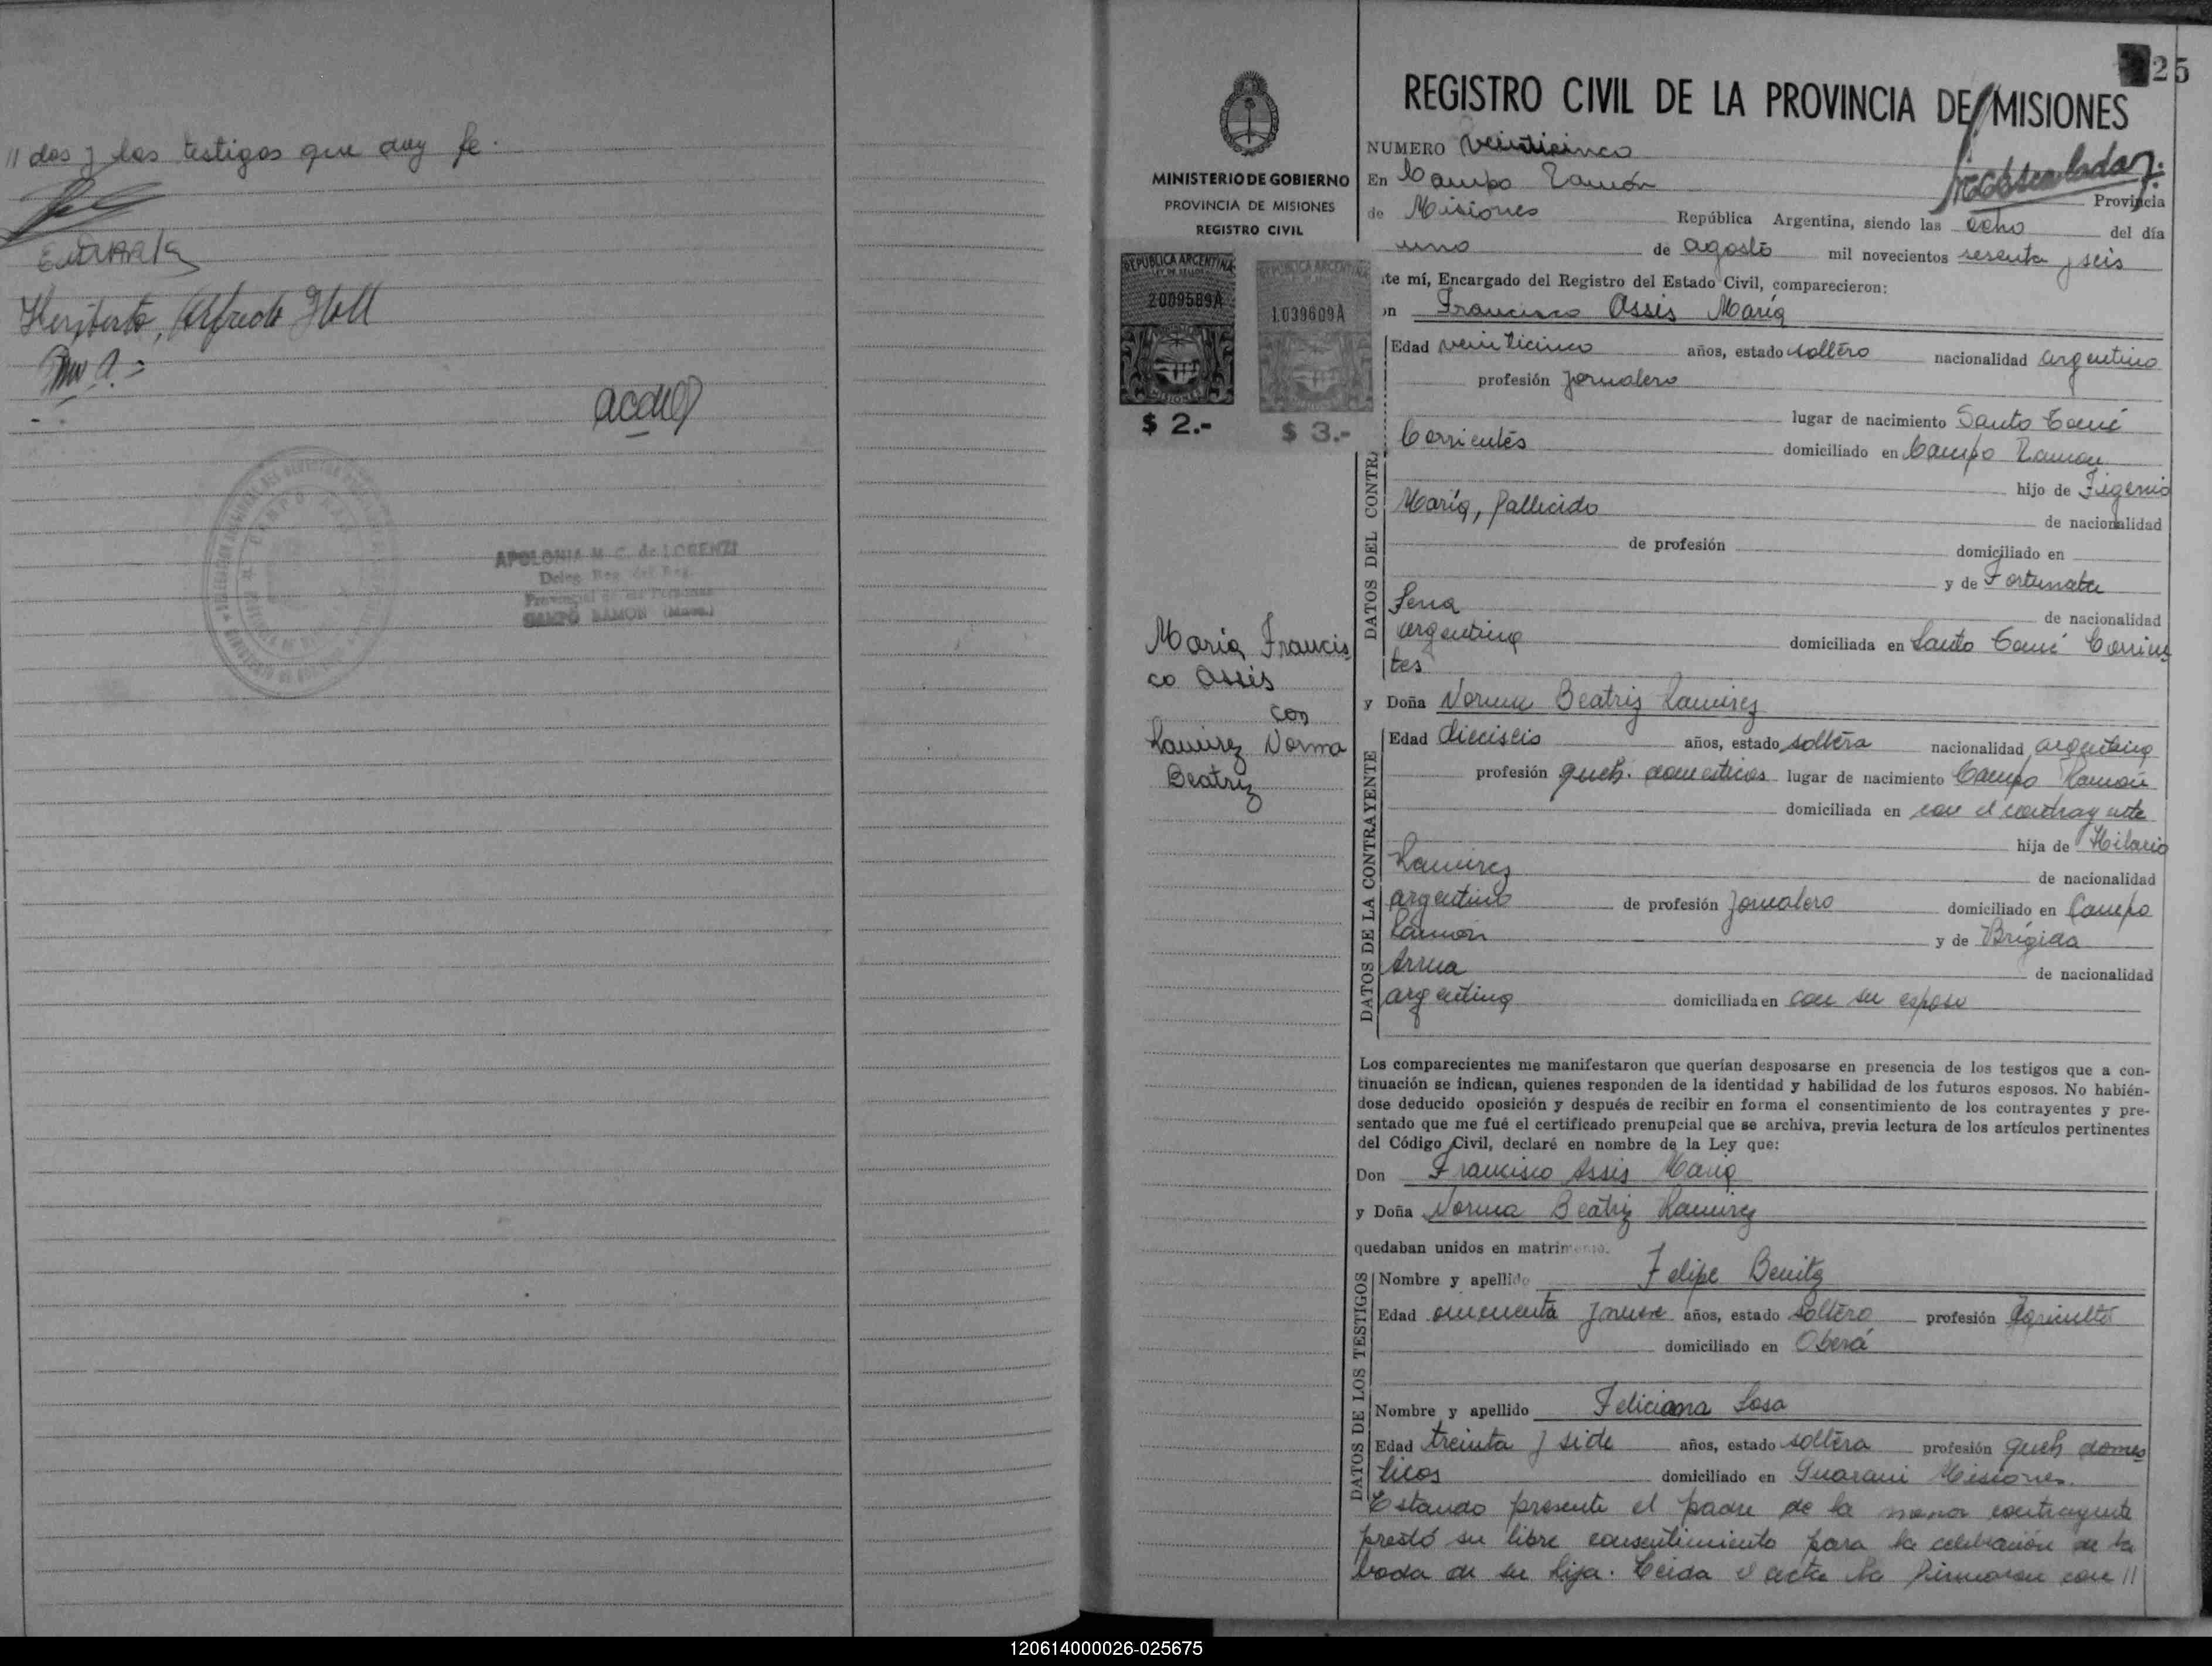 // dos y los testigos que doy fe.
Heriberto, Alfredo Holl
APOLONIA M. C. de LORENZI
Deleg. Reg. del Reg.
Provincial de las Personas
CAMPO RAMON (Mnes.)
25
REGISTRO CIVIL DE LA PROVINCIA DE MISIONES
MINISTERIO DE GOBIERNO
PROVINCIA DE MISIONES
REGISTRO CIVIL
REPUBLICA ARGENTINA
2009589A
MISIONES
$ 2.-
REPUBLICA ARGENTINA
1039609A
MISIONES
$ 3.-
Maria Francis
co Assis
con
Ramirez Norma
Beatriz
NUMERO veinticinco
En Campo Ramón Provincia
de Misiones República Argentina, siendo las ocho del día
uno de agosto mil novecientos sesenta y seis
te mí, Encargado del Registro del Estado Civil, comparecieron:
n Francisco Assis María
DATOS DEL CONTRA
Edad veinticinco años, estado soltero nacionalidad argentino
profesión Jornalero
lugar de nacimiento Santo Tomé
Corrientes domiciliado en Campo Ramon
hijo de Figenio
María, fallecido de nacionalidad
de profesión domiciliado en
y de Fortunata
Sena de nacionalidad
argentina domiciliada en Santo Tomé Corrien
tes
y Doña Norma Beatriz Ramirez
DATOS DE LA CONTRAYENTE
Edad dieciseis años, estado soltera nacionalidad argentina
profesión queh. domesticos lugar de nacimiento Campo Ramón
domiciliada en con el contrayente
hija de Hilario
Ramirez de nacionalidad
argentino de profesión Jornalero domiciliado en Campo
Ramon y de Brigida
Arrua de nacionalidad
argentina domiciliada en con su esposo
Los comparecientes me manifestaron que querían desposarse en presencia de los testigos que a con-
tinuación se indican, quienes responden de la identidad y habilidad de los futuros esposos. No habién-
dose deducido oposición y después de recibir en forma el consentimiento de los contrayentes y pre-
sentado que me fué el certificado prenupcial que se archiva, previa lectura de los artículos pertinentes
del Código Civil, declaré en nombre de la Ley que:
Don Francisco Assis Maria
y Doña Norma Beatriz Ramirez
quedaban unidos en matrimonio.
DATOS DE LOS TESTIGOS
Nombre y apellido Felipe Benitz
Edad años, estado soltero profesión Agricultor
domiciliado en Oberá
Nombre y apellido Feliciana Sosa
Edad treinta y siete años, estado soltera profesión queh domes
ticos domiciliado en Guarani Misiones.
Estando presente el padre de la menor contrayente
prestó su libre consentimiento para la celebración de la
boda de su hija. Leida el acta la firmaron con //
120614000026-025675